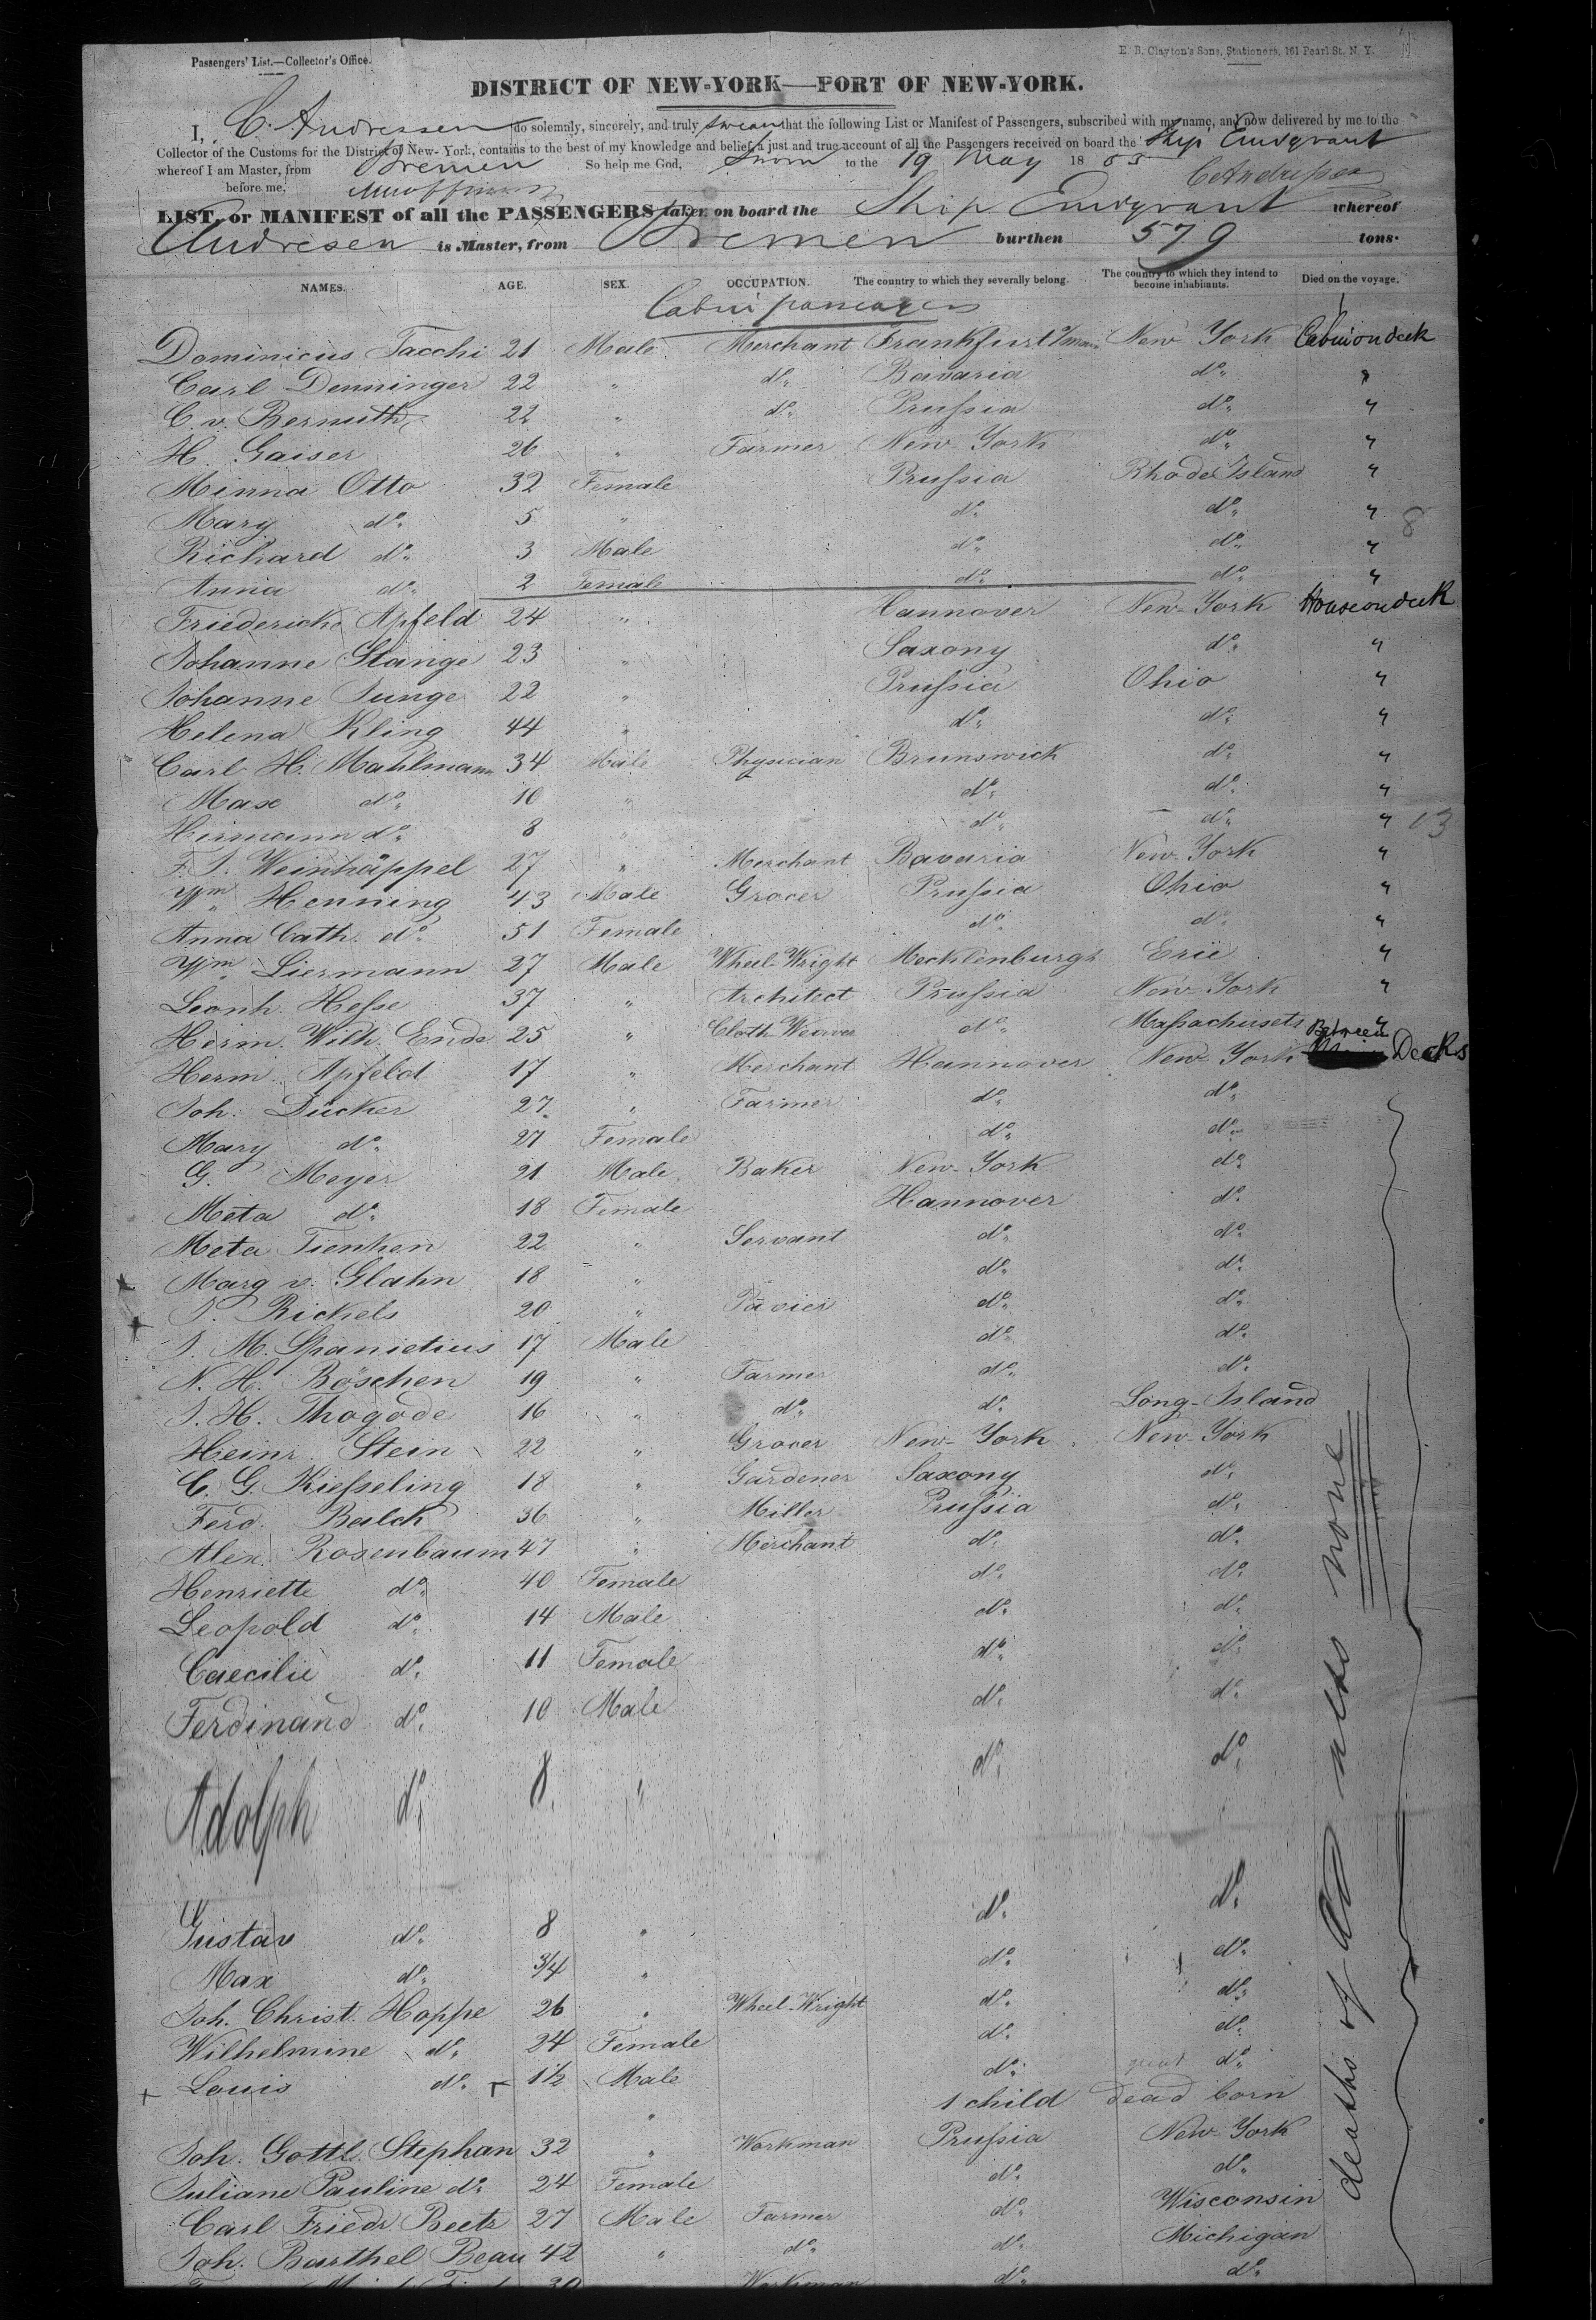 Passengers' List.—Collector's Office.
E. B. Clayton's Sons, Stationers, 161 Pearl St. N. Y.
DISTRICT OF NEW-YORK—PORT OF NEW-YORK.
I, C. Andressen do solemnly, sincerely, and truly swear that the following List or Manifest of Passengers, subscribed with my name, and now delivered by me to the
Collector of the Customs for the District of New-York, contains to the best of my knowledge and belief, a just and true account of all the Passengers received on board the Ship Emigrant
whereof I am Master, from Bremen So help me God, Sworn to the 19 May 18
before me, C Andresen
LIST, or MANIFEST of all the PASSENGERS taken on board the Ship Emigrant whereof
Andresen is Master, from Bremen burthen 579 tons.
NAMES. AGE. SEX. OCCUPATION. The country to which they severally belong. The country to which they intend to become inhabitants. Died on the voyage.
Cabin passengers
Dominicus Tacchi 21 Male Merchant Frankfurt New York Cabin on deck
Carl Denninger 22 " do. Bavaria do. "
C. v. Bernuth 22 " do. Prussia do. "
H. Gaiser 26 " Farmer New York do. "
Minna Otto 32 Female Prussia Rhode Island "
Mary do. 5 " do. do. " 8
Richard do. 3 Male do. do. "
Anna do. 2 Female do. do. "
Friederiche Apfeld 24 " Hannover New-York House on deck
Johanne Stange 23 " Saxony do. "
Johanne Junge 22 " Prussia Ohio "
Helena Kling 44 " do. do. "
Carl H. Mahlmann 34 Male Physician Brunswick do. "
Max do. 10 " do. do. "
Hermann do. 8 " do. do. " 13
F. J. Weinhäppel 27 " Merchant Bavaria New-York "
Wm. Henning 43 Male Grocer Prussia Ohio "
Anna Cath. do. 51 Female do. do. "
Wm. Liermann 27 Male Wheel-Wright Mecklenburgh Erie "
Leonh. Hesse 37 " Architect Prussia New-York "
Herm. Wilh. Ende 25 " Cloth Weaver do. Massachusets "
Herm. Apfeld 17 " Merchant Hannover New-York Between Decks
Joh. Dücker 27 " Farmer do. do.
Mary do. 27 Female do. do.
G. Meyer 21 Male Baker New-York do.
Meta do. 18 Female Hannover do.
Meta Tienken 22 " Servant do. do.
Marg v. Glahn 18 " do. do.
J. Rickels 20 " Pavier do. do.
J. M. Spanietius 17 Male do. do.
N. H. Böschen 19 " Farmer do. do.
J. H. Thogode 16 " do. do. Long-Island
Heinr. Stein 22 " Grocer New-York New-York
C. G. Kiesseling 18 " Gardener Saxony do.
Ferd. Balck 36 " Miller Prussia do.
Alex. Rosenbaum 47 " Merchant do. do.
Henriette do. 40 Female do. do.
Leopold do. 14 Male do. do.
Caecilie do. 11 Female do. do.
Ferdinand do. 10 Male do. do.
Adolph do. 8 " do. do.
Gustav do. 8 " do. do.
Max do. 3/4 " do. do.
Joh. Christ. Hoppe 26 " Wheel-Wright do. do.
Wilhelmine do. 24 Female do. do.
Louis do. 1½ Male do. do.
" 1 child dead born
Joh. Gottl. Stephan 32 " Workman Prussia New-York
Juliane Pauline do. 24 Female do. do.
Carl Friedr Beetz 27 Male Farmer do. Wisconsin
Joh. Barthel Beau 42 " do. do. Michigan
30 Workman do. do.
deaths of none